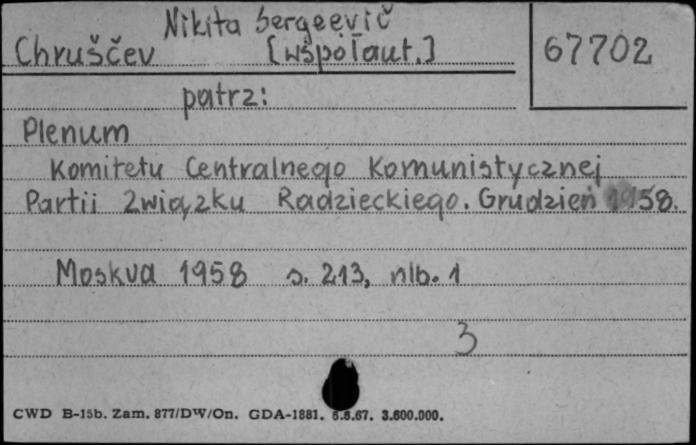 Nikita Sergeevič
Chruščev [współaut.] 67702
patrz:
Plenum
Komitetu Centralnego Komunistycznej
Partii Związku Radzieckiego. Grudzień 1958.
Moskva 1958 s. 213, nlb. 1
3
CWD B-15b. Zam. 877/DW/On. GDA-1881. 6.6.67. 3.600.000.